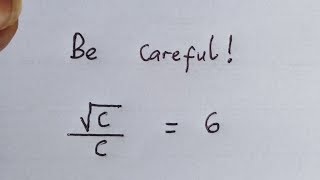 Be careful!
√c / c = 6